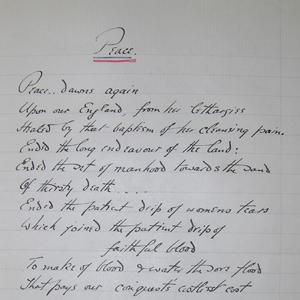 Peace.
Peace.. dawns again
Upon our England, from her
by that baptism of her cleansing pain.
Ended the long endeavour of the land:
Ended the set of manhood towards the sand
Of thirsty death....
Ended the patient drip of womens tears
Which joined the patient drip of
faithful blood
To make of blood & water the flood
That pays our conquests costliest cost